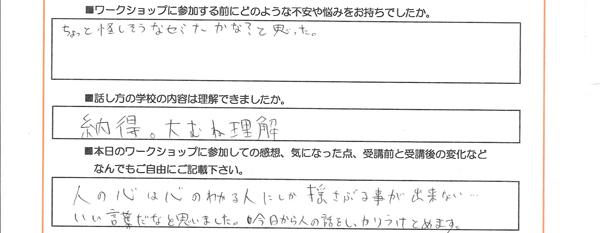 ■ワークショップに参加する前にどのような不安や悩みをお持ちでしたか。
ちょっと怪しそうなセミナーかな?と思った。
■話し方の学校の内容は理解できましたか。
納得。大むね理解
■本日のワークショップに参加しての感想、気になった点、受講前と受講後の変化など
なんでもご自由にご記載下さい。
人の心は心のわかる人にしか揺さぶる事が出来ない…
いい言葉だなと思いました。今日から人の話をしっかりうけとめます。